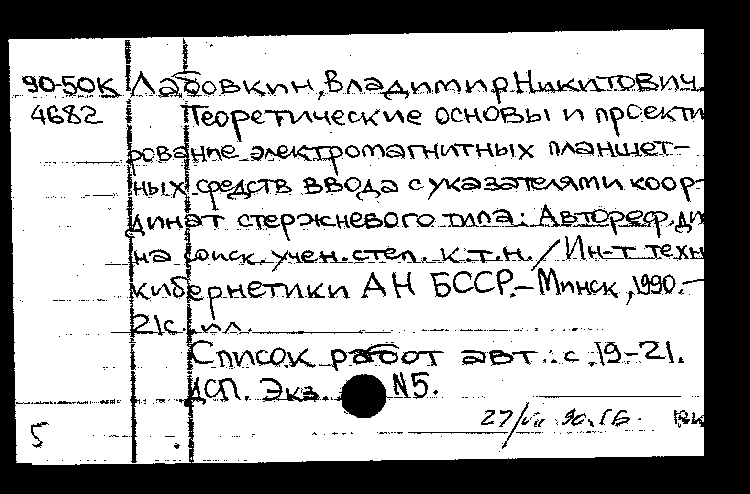 90-50К Лабовкин, Владимир Никитович.
4682 Теоретические основы и проекти
рование электромагнитных планшет-
ных средств ввода с указателями коор-
динат стержневого типа: Автореф. ди
на соиск. учен. степ. к.т.н. / Ин-т техн
кибернетики АН БССР. – Минск, 1990. –
21с. ил.
Список работ авт.: с. 19-21.
ДСП. Экз. N5.
27/VII 90. ГБ. ВК
5